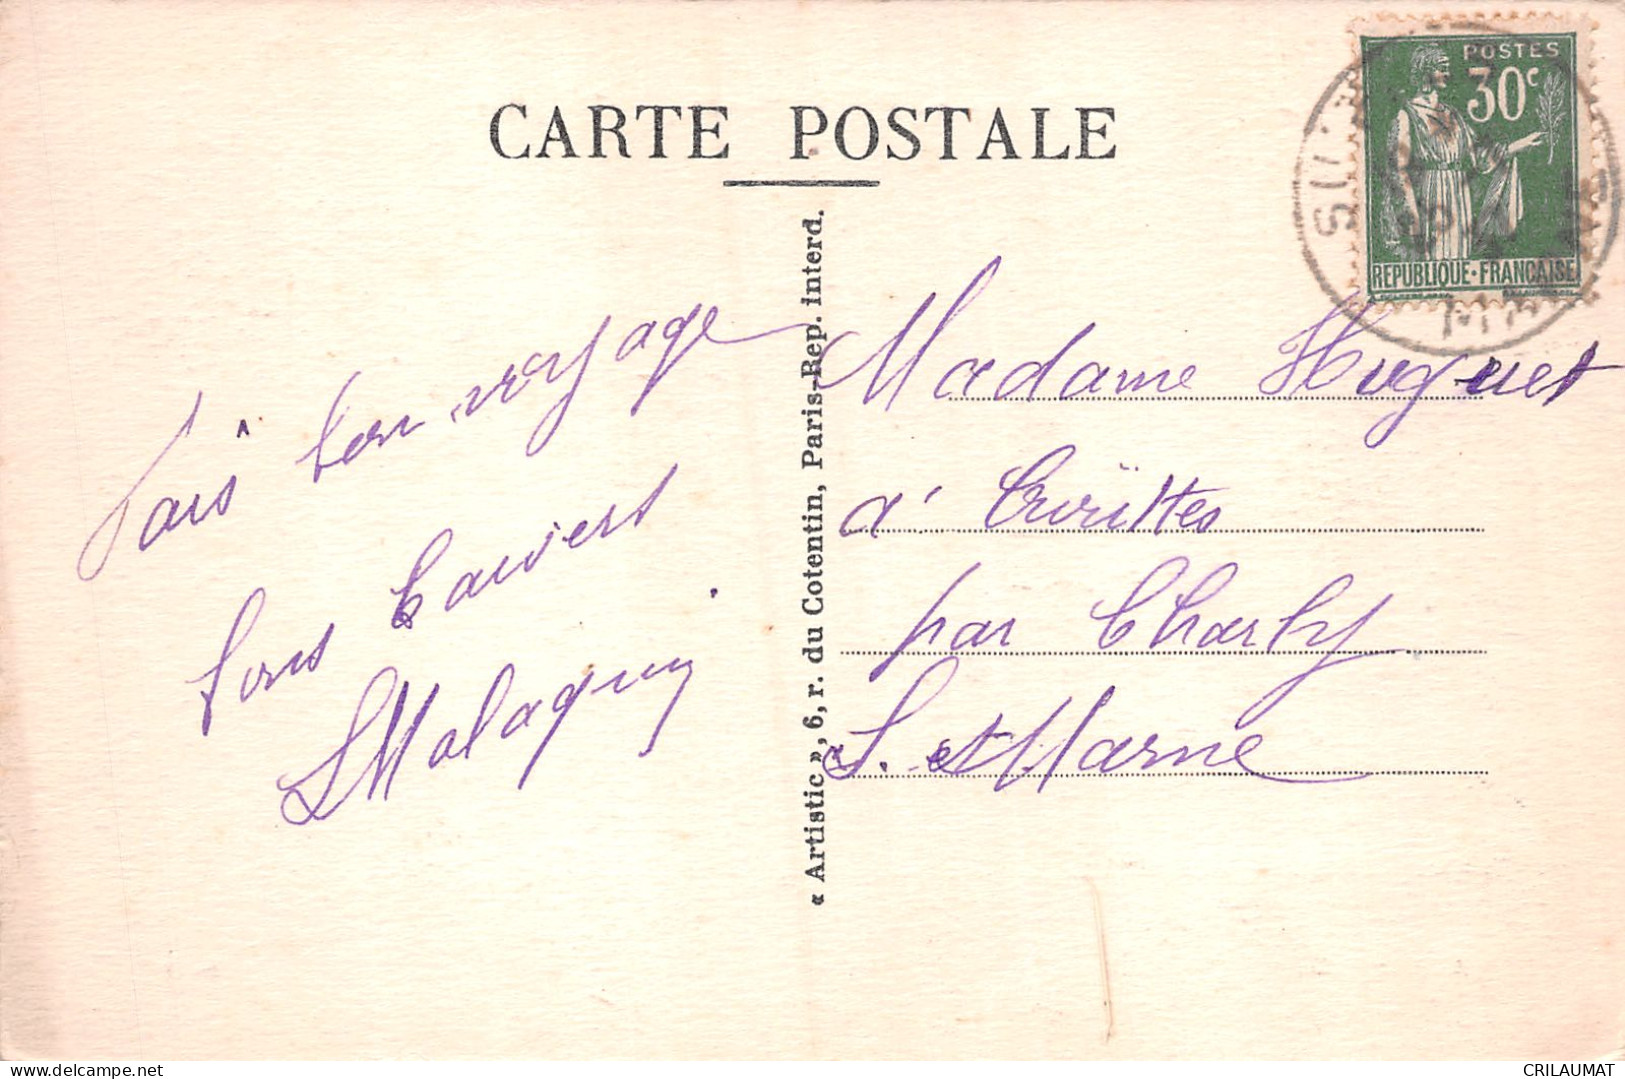 CARTE POSTALE
POSTES
30c
REPUBLIQUE·FRANÇAISE
SUL
fais bon voyage
bons baisers
Malaquin
« Artistic », 6, r. du Cotentin, Paris-Rep. interd.
Madame Huguet
à Crouttes
par Charly
S. et Marne
www.delcampe.net
CRILAUMAT